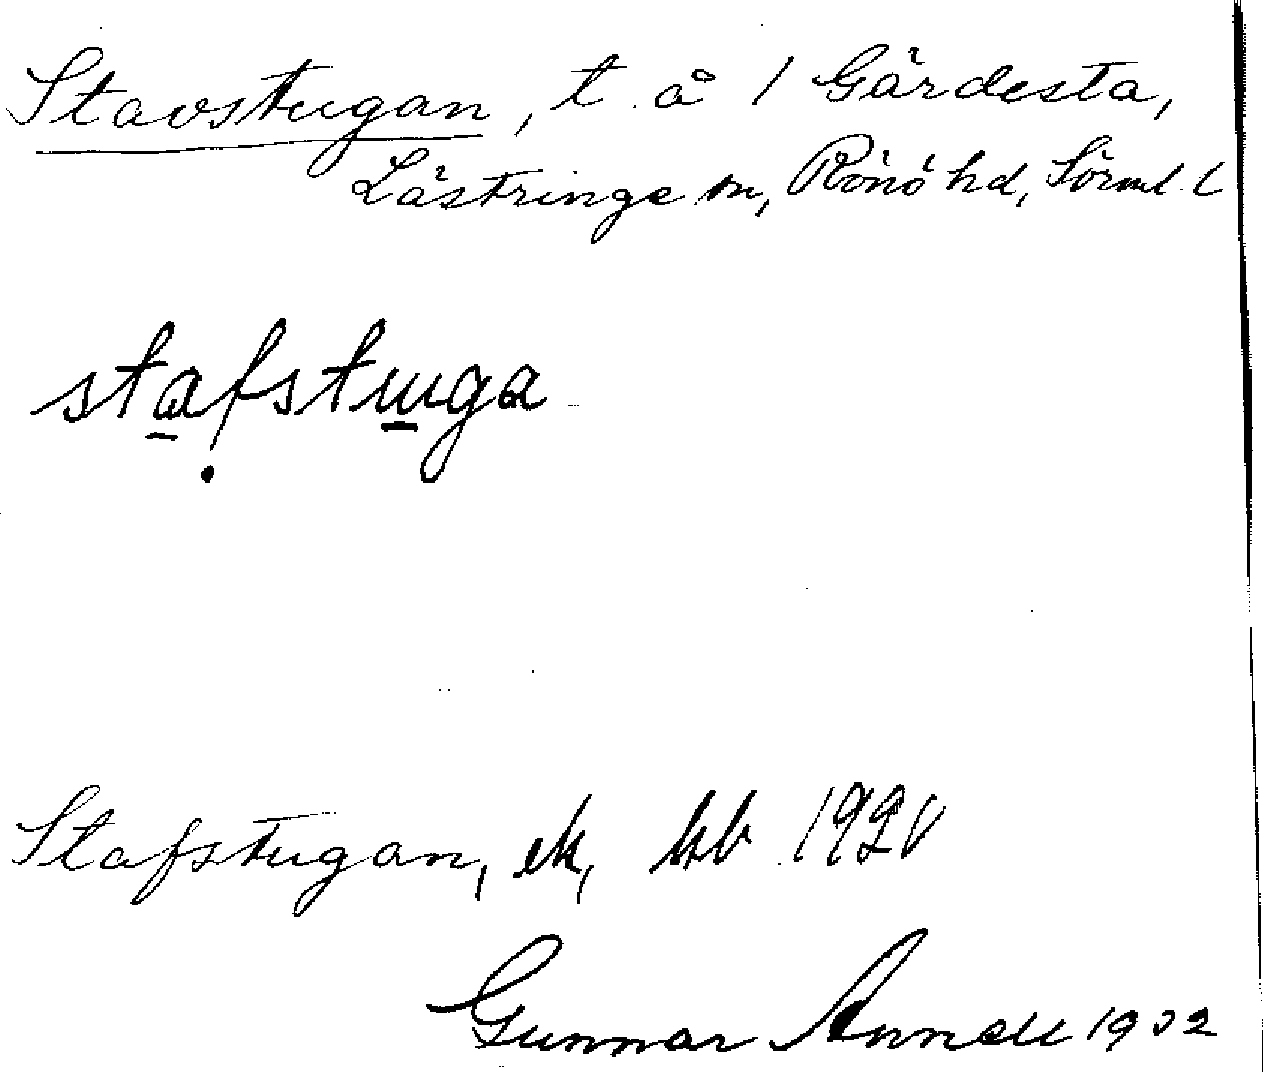 Stavstugan, t. å 1 Gärdesta,
Lästringe sn, Rönö hd, Sörml. l
stafstuga
Stafstugan, ek, kb 1920
Gunnar Annell 1932